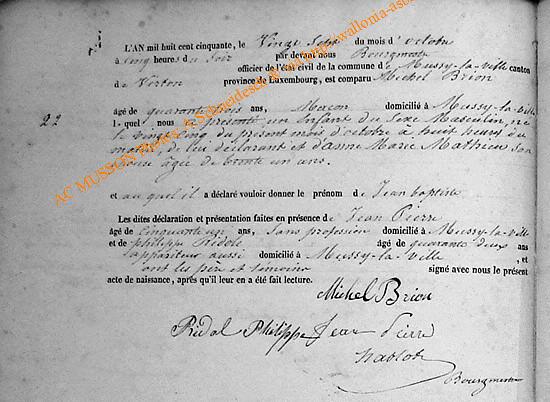 L'AN mil huit cent cinquante, le Vingt Sept du mois d'octobre
à cinq heures du Soir par devant nous Bourgmestre
officier de l'état civil de la commune de Mussy-la-ville canton
de Virton province de Luxembourg, est comparu Michel Brion
âgé de quarante trois ans, Macon domicilié à Mussy-la-ville
22 l-quel nous a présenté un enfant du Sexe Masculin, né
le vingt cinq du présent mois d'octobre à huit heures du
matin, de lui déclarant et d'anne Marie Mathieu Son
épouse âgée de trente un ans.
et auquel il a déclaré vouloir donner le prénom de Jean baptiste
Les dites déclaration et présentation faites en présence de Jean Pierre
âgé de cinquante un ans, Sans profession domicilié à Mussy-la-ville
et de philippe Ridole âgé de quarante deux ans
appariteur aussi domicilié à Mussy-la-ville, et
ont les père et témoins signé avec nous le présent
acte de naissance, après qu'il leur en a été fait lecture.
Michel Brion
Ridol Philippe Jean Pierre
Bourgmestre
AC MUSSON Photos A. Schneidesch & http://wallonia-asb